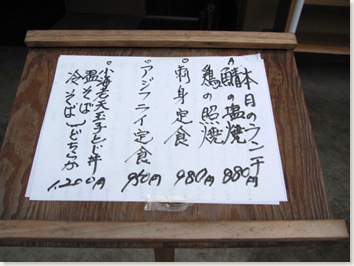 本日のランチ
A 鯖の塩焼
鶏の照焼 880円
○刺身定食 980円
○アジフライ定食 950円
○小海老天玉子とじ丼
温そば
冷そば どちらか 1,200円